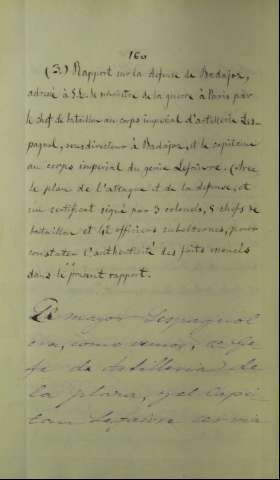 160
(3) Rapport sur la défense de Badajoz,
adressé à S.E. le ministre de la guerre à Paris par
le chef de bataillon au corps impérial d'artillerie Les-
pagnol, sous directeur à Badajoz, et le capitaine
au corps impérial du génie Lefaivre. (Avec
le plan de l'attaque et de la défense, et
un certificat signé par 3 colonels, 8 chefs de
bataillon et 41 officiers subalternes, pour
constater l'authenticité des faits énoncés
dans le présent rapport.
El mayor Lespagnol
era, como vemos, el Ge-
fe de Artilleria de
la plaza, y el Capi-
tan Lefaivre servia